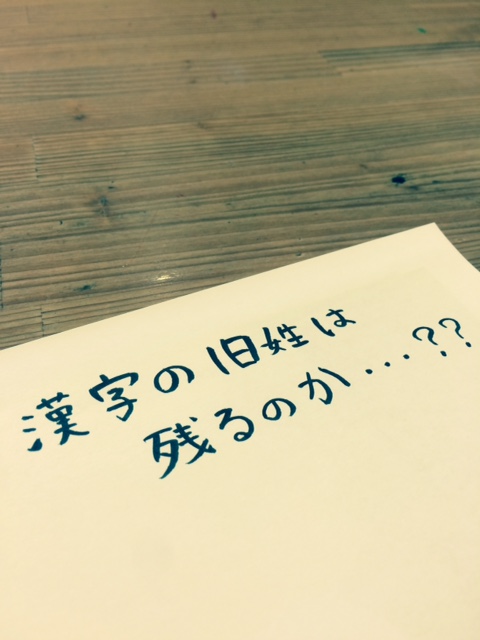 漢字の旧姓は
残るのか…??